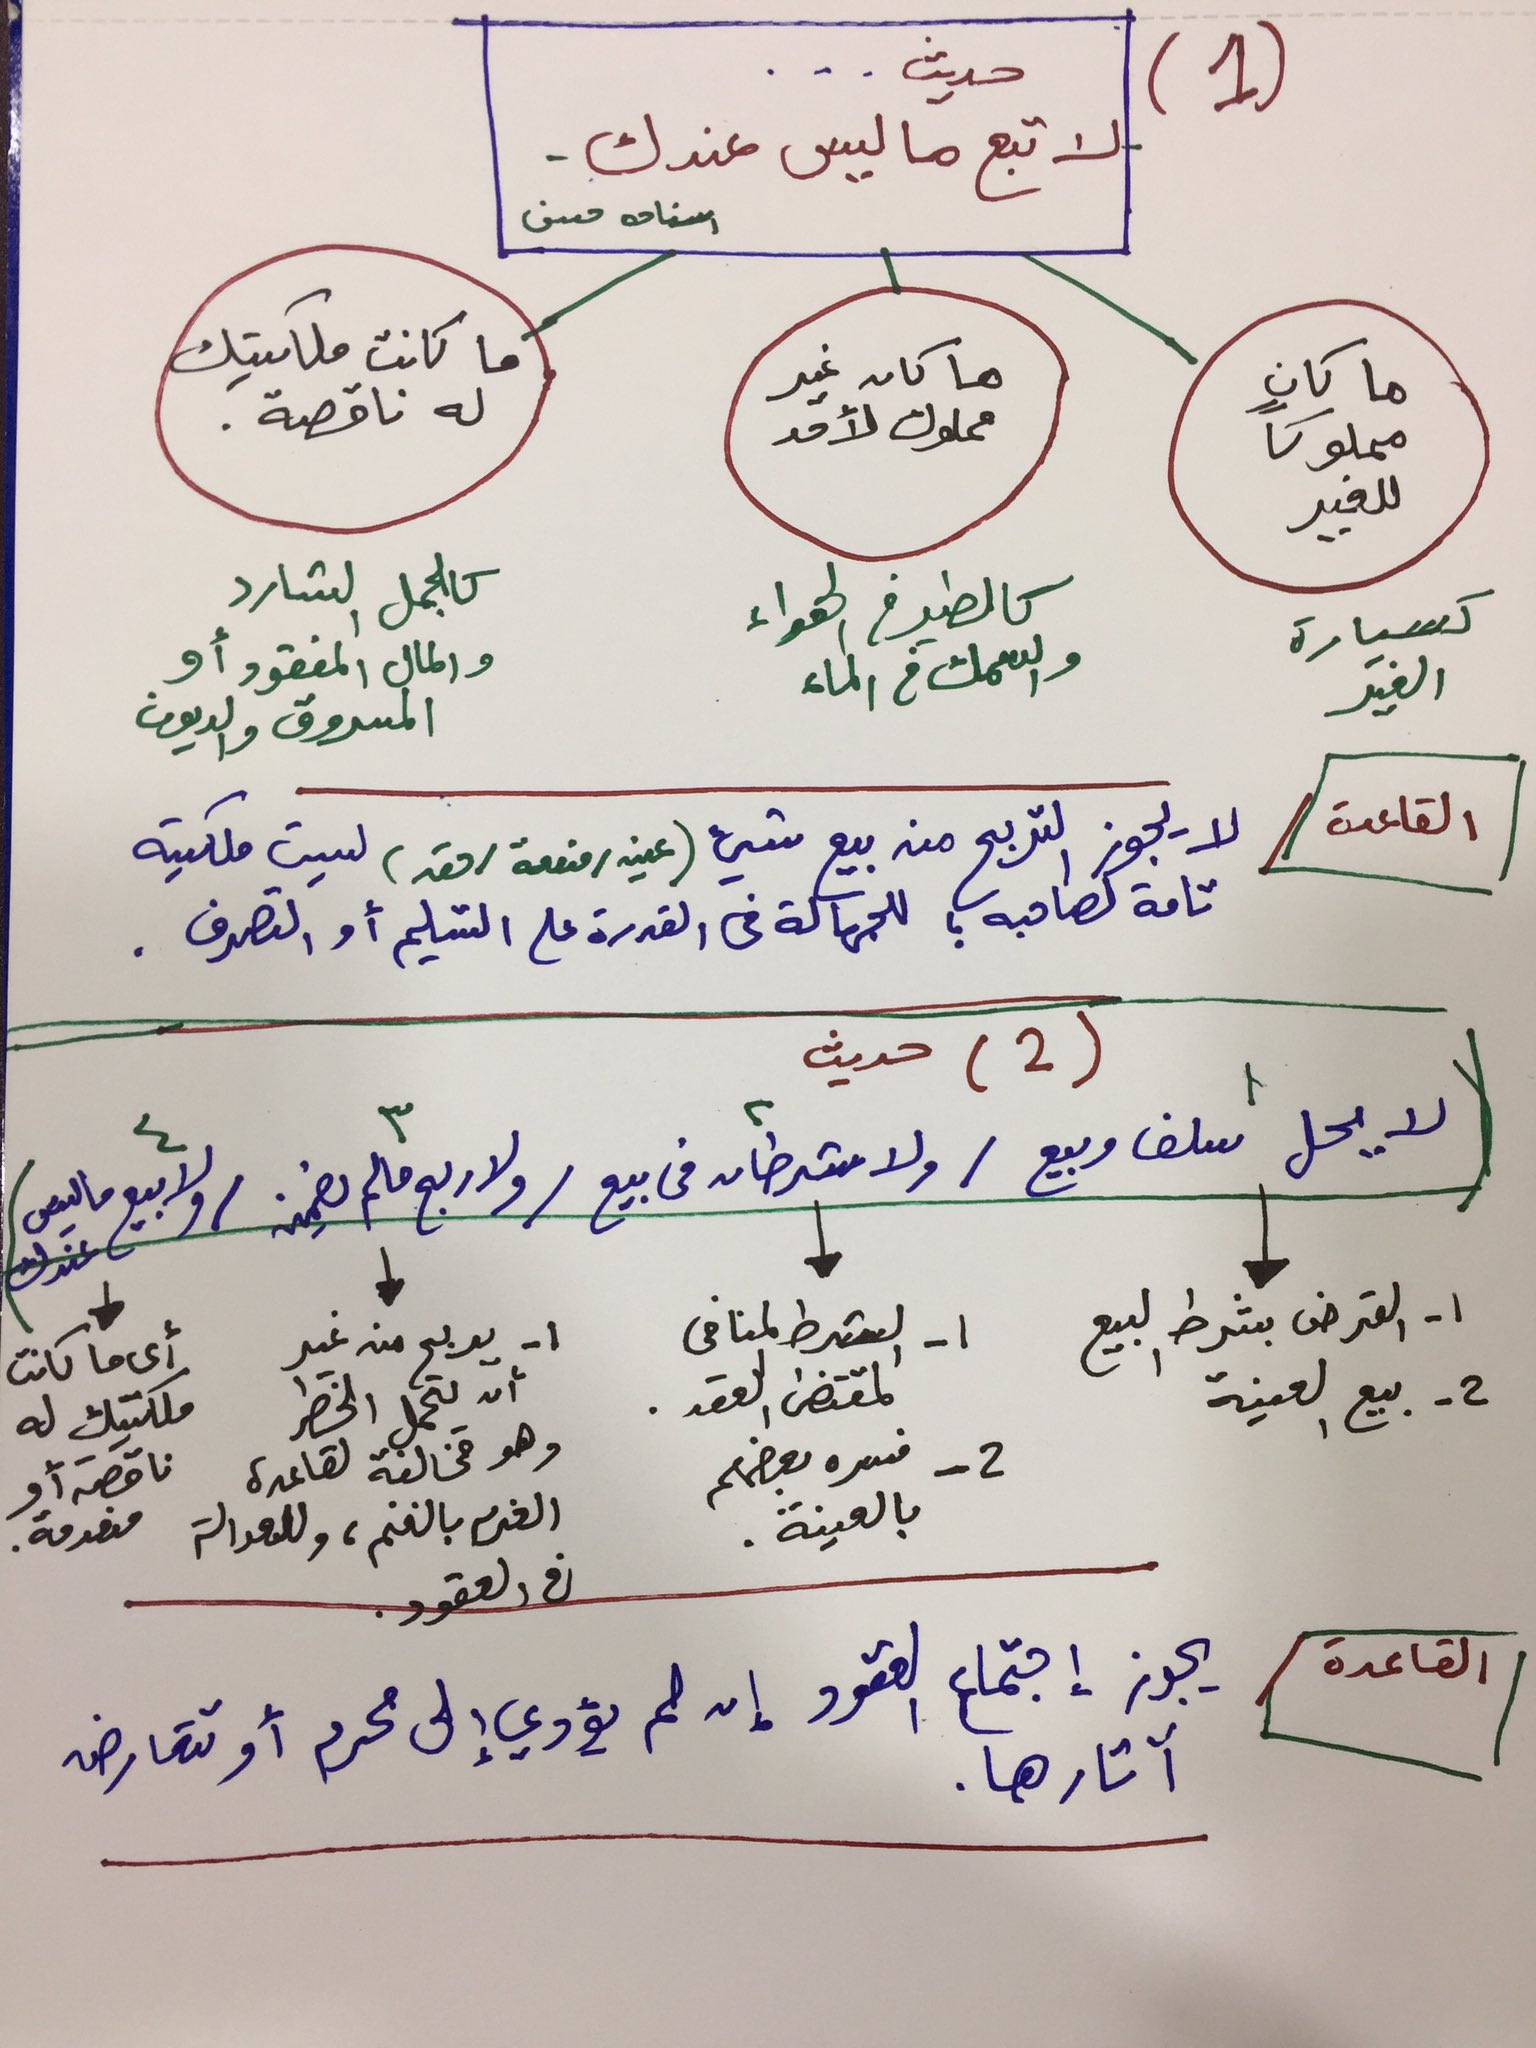 (1)
حديث ...
- لا تبع ما ليس عندك -
اسناده حسن
ما كان
مملوكاً
للغير
كسيارة
الغير
ما كان غير
مملوك لأحد
كالطير في الهواء
والسمك في الماء
ما كانت ملكيتك
له ناقصة .
كالجمل الشارد
والمال المفقود أو
المسروق والديون
القاعدة
لا يجوز التربح من بيع شيئ (عين/منفعة/حق) ليست ملكيته
تامة لصاحبه ؛ للجهالة في القدرة على التسليم أو التصرف .
(2) حديث
١ ٢ ٣ ٤
لا يحل سلف وبيع / ولا شرطان في بيع / ولا ربح مالم يضمن / ولا بيع ما ليس
عندك
١- القرض بشرط البيع
2- بيع العينة
١- الشرط المنافي
لمقتضى العقد .
2- فسره بعضهم
بالعينة .
١- يربح من غير
أن يتحمل الخطر
وهو مخالفة لقاعدة
الغرم بالغنم ، وللعدالة
في العقود .
أي ما كانت
ملكيتك له
ناقصة أو
منعدمة .
القاعدة
يجوز إجتماع العقود إن لم يؤدي إلى محرم أو تتعارض
آثارها .